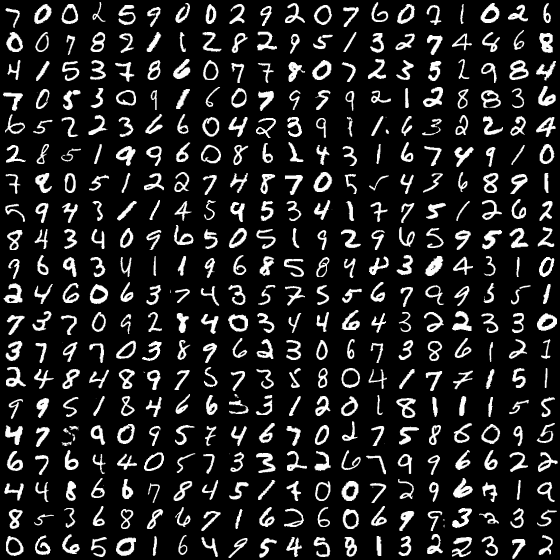 7 0 0 2 5 9 0 0 2 9 2 0 7 6 0 7 1 0 2 6
0 0 7 8 2 1 1 2 8 2 9 5 1 3 2 7 4 8 6 8
4 1 5 3 7 8 6 0 7 7 8 0 7 2 3 5 2 9 8 4
7 0 5 3 0 9 1 6 0 7 9 5 9 2 1 2 8 8 3 6
6 5 2 2 3 6 6 0 4 2 3 9 1 1 6 3 2 2 2 4
2 8 5 1 9 9 6 0 8 6 2 4 3 1 6 7 4 9 1 0
7 8 0 5 1 2 2 7 4 8 7 0 5 4 3 6 8 9 1
5 9 4 3 1 1 4 5 9 5 3 4 1 7 7 5 1 2 6 2
8 4 3 4 0 9 6 5 0 5 1 9 2 9 6 5 9 5 2 2
9 6 9 3 4 1 1 9 6 8 5 8 4 8 3 0 4 3 1 0
2 4 6 0 6 3 7 4 3 5 7 5 5 6 7 9 9 5 5 1
7 3 7 0 9 2 8 4 0 3 4 4 6 4 3 2 2 3 3 0
3 7 9 7 0 3 8 9 6 2 3 0 6 7 3 8 6 1 2 1
2 4 8 4 8 9 7 5 7 3 8 8 0 4 1 7 7 1 5 1
9 9 5 1 8 4 6 6 3 3 1 2 0 1 8 1 1 1 5 5
4 7 5 9 0 9 5 7 4 6 7 0 2 7 5 8 6 0 9 5
6 7 6 4 4 0 5 7 3 3 2 2 6 7 9 9 6 6 2 2
4 4 8 6 6 7 8 4 5 1 7 0 0 7 2 9 6 1 9
8 5 3 6 8 8 6 7 1 6 2 6 0 6 9 9 3 2 3 5
0 6 6 5 0 1 6 4 9 5 4 5 8 1 3 2 3 7 2